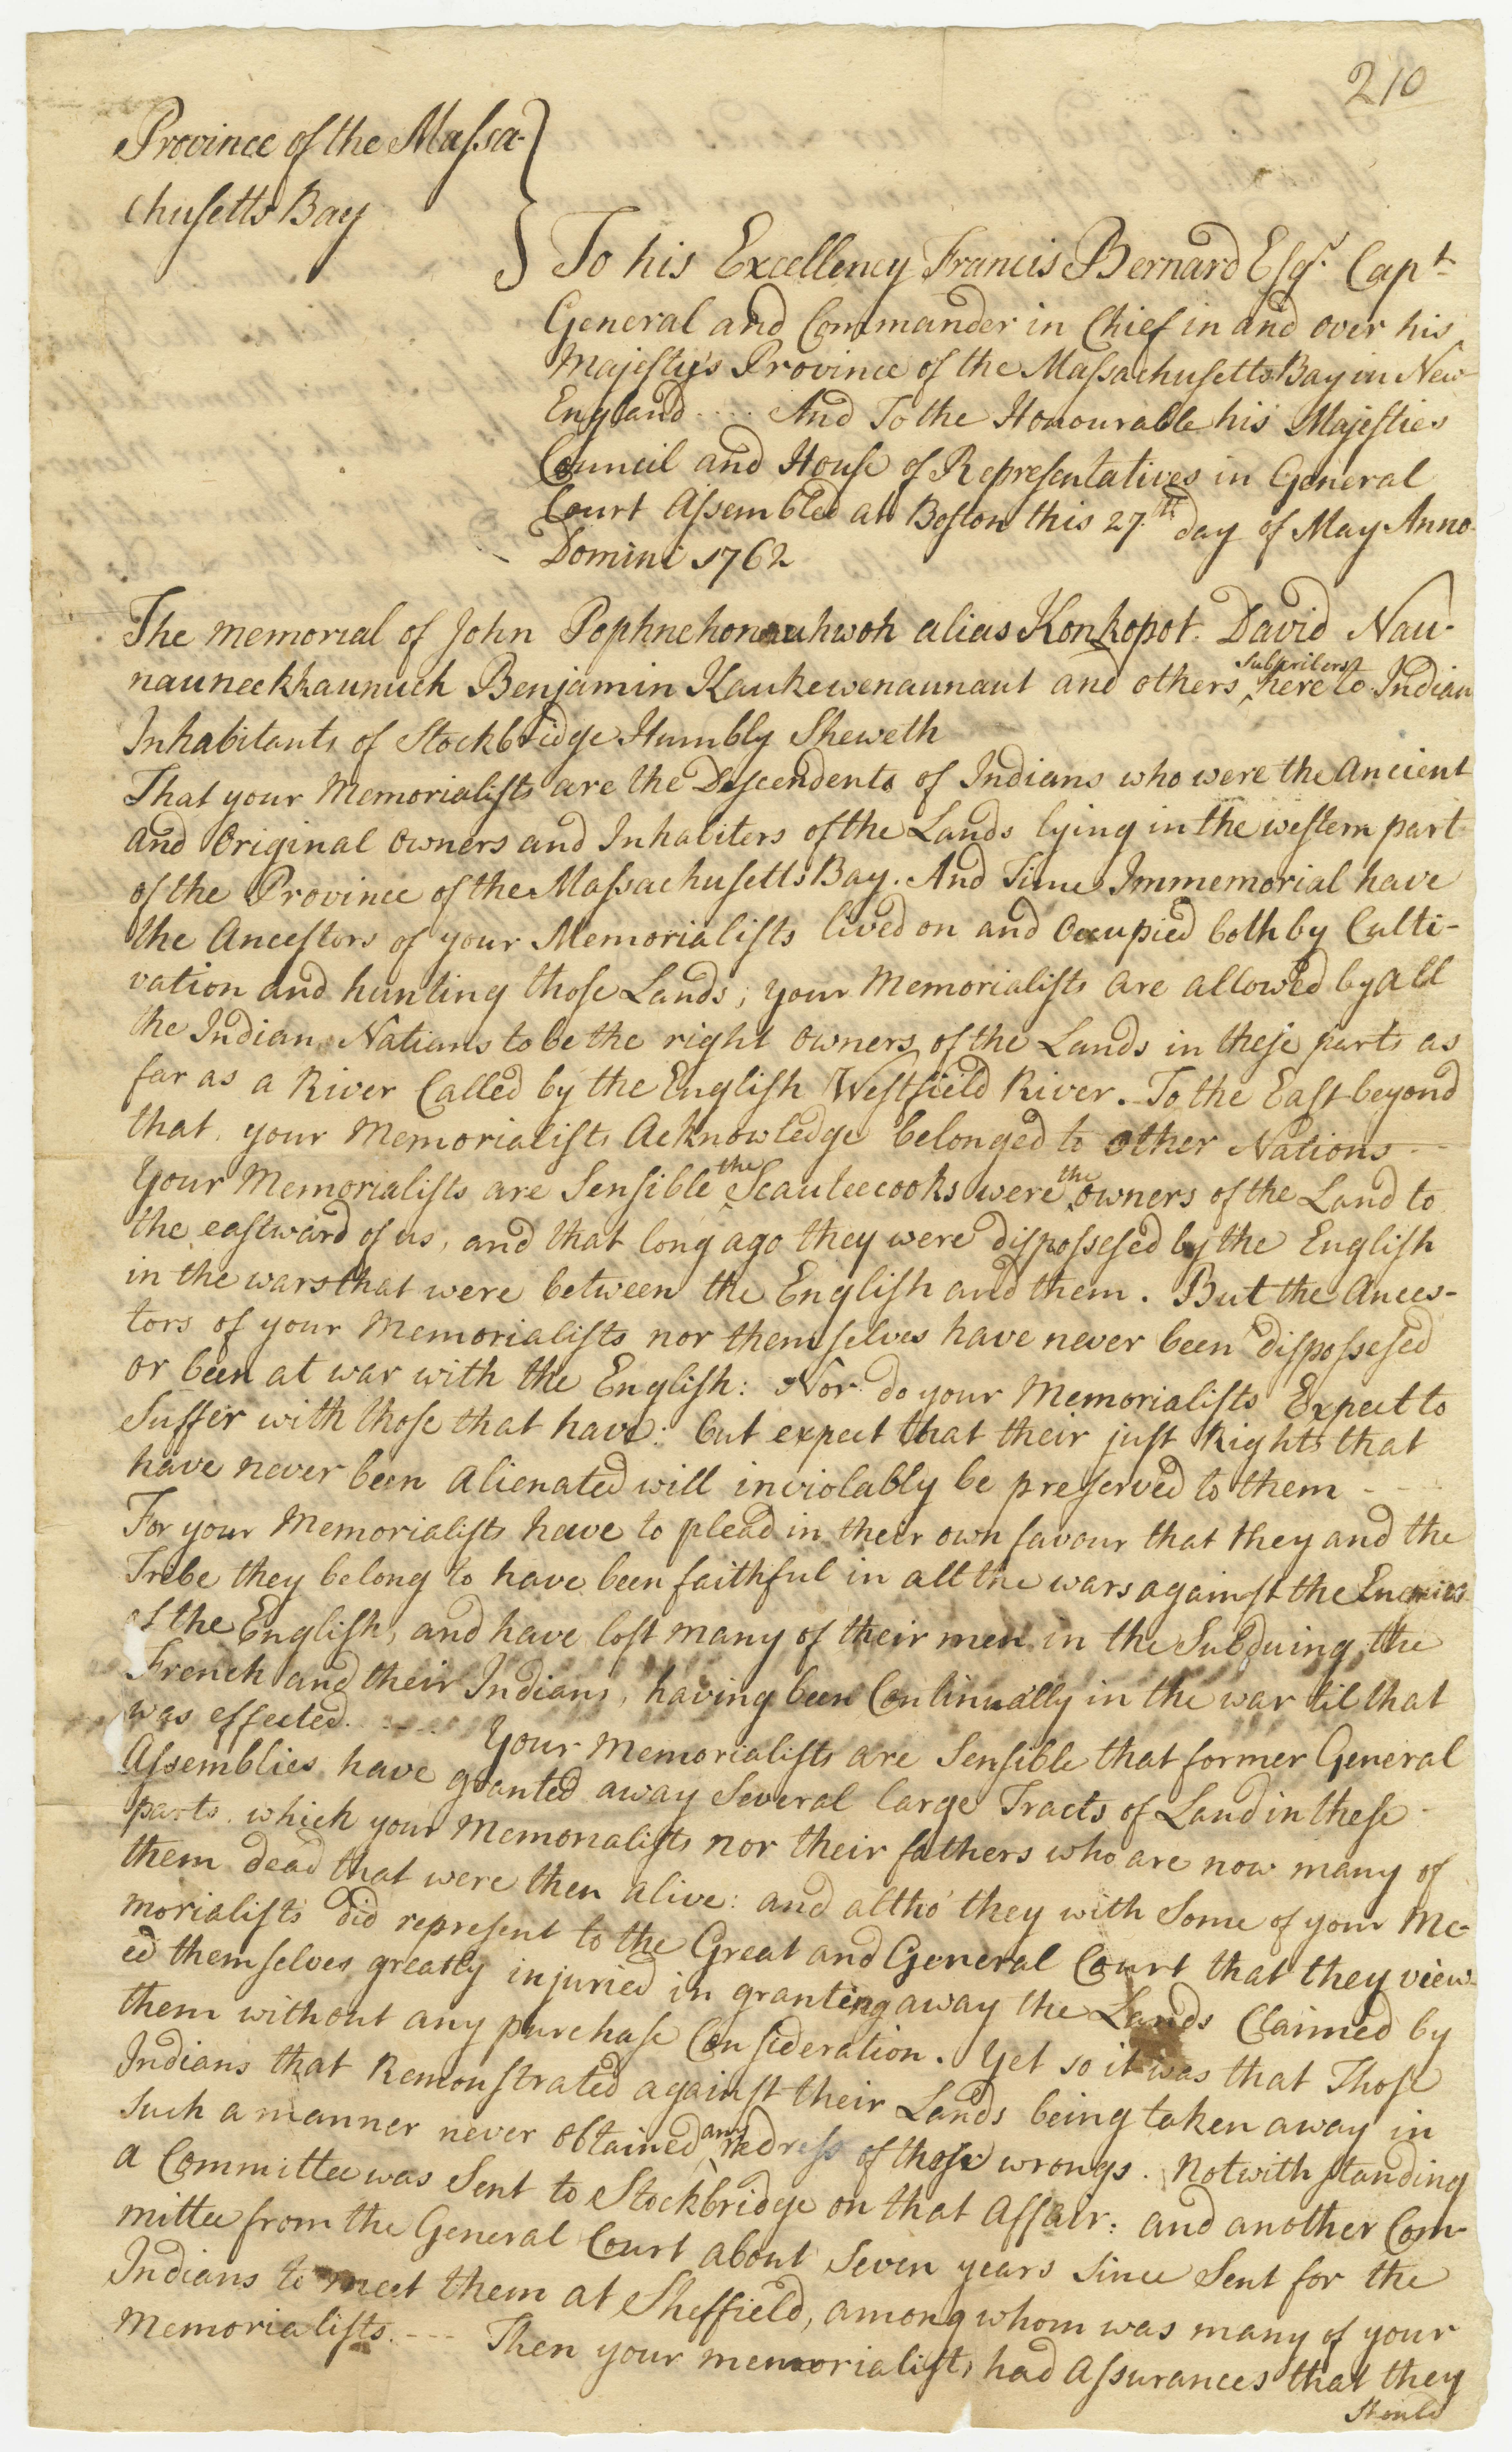 210
Province of the Massa-
chusetts Bay
To his Excellency Francis Bernard Esqr. Capt
General and Commander in Chief in and over his
Majesty's Province of the Massachusetts Bay in New
England .... And To the Honourable his Majesties
Council and House of Representatives in General
Court Assembled at Boston this 27th day of May Anno
Domini 1762
The memorial of John Pophnehonauhwoh alias Konkopot. David Nau-
nauneekhaunuch Benjamin Kaukewenaunaut and others subscribers here to Indian
Inhabitants of Stockbridge Humbly Sheweth
That your Memorialists are the Descendents of Indians who were the Ancient
and Original owners and Inhabiters of the Lands lying in the western part
of the Province of the Massachusetts Bay. And Time Immemorial have
the Ancestors of your Memorialists lived on and Occupied both by Culti-
vation and hunting those Lands; your Memorialists are allowed by all
the Indian Nations to be the right owners of the Lands in these parts as
far as a River Called by the English Westfield River. To the East beyond
that, your Memorialists Acknowledge belonged to other Nations --
Your Memorialists are Sensible the Scauteecooks were the owners of the Land to
the eastward of us, and that long ago they were dispossesed by the English
in the wars that were between the English and them. But the Ances-
tors of your Memorialists nor themselves have never been dispossesed
or been at war with the English: Nor do your Memorialists Expect to
Suffer with those that have: but expect that their just Rights that
have never been alienated will inviolably be preserved to them - - -
For your Memorialists have to plead in their own favour that they and the
Tribe they belong to have been faithful in all the wars against the Enemies
of the English, and have lost many of their men in the Subduing the
French and their Indians, having been Continually in the war til that
was effected. - - - - Your Memorialists are Sensible that former General
Assemblies have granted away Several large Tracts of Land in these
parts which your Memorialists nor their fathers who are now many of
them dead that were then alive: and altho' they with Some of your Me-
morialists did represent to the Great and General Court that they view-
ed themselves greatly injuried in granting away the Lands Claimed by
them without any purchase Consideration. Yet so it was that Those
Indians that Remonstrated against their Lands being taken away in
Such a manner never obtained any redress of those wrongs. Notwithstanding
a Committee was Sent to Stockbridge on that Affair: and another Com-
mittee from the General Court about Seven years Since Sent for the
Indians to meet them at Sheffield, among whom was many of your
Memorialists. - - - Then your memorialists had Assurances that they
Should